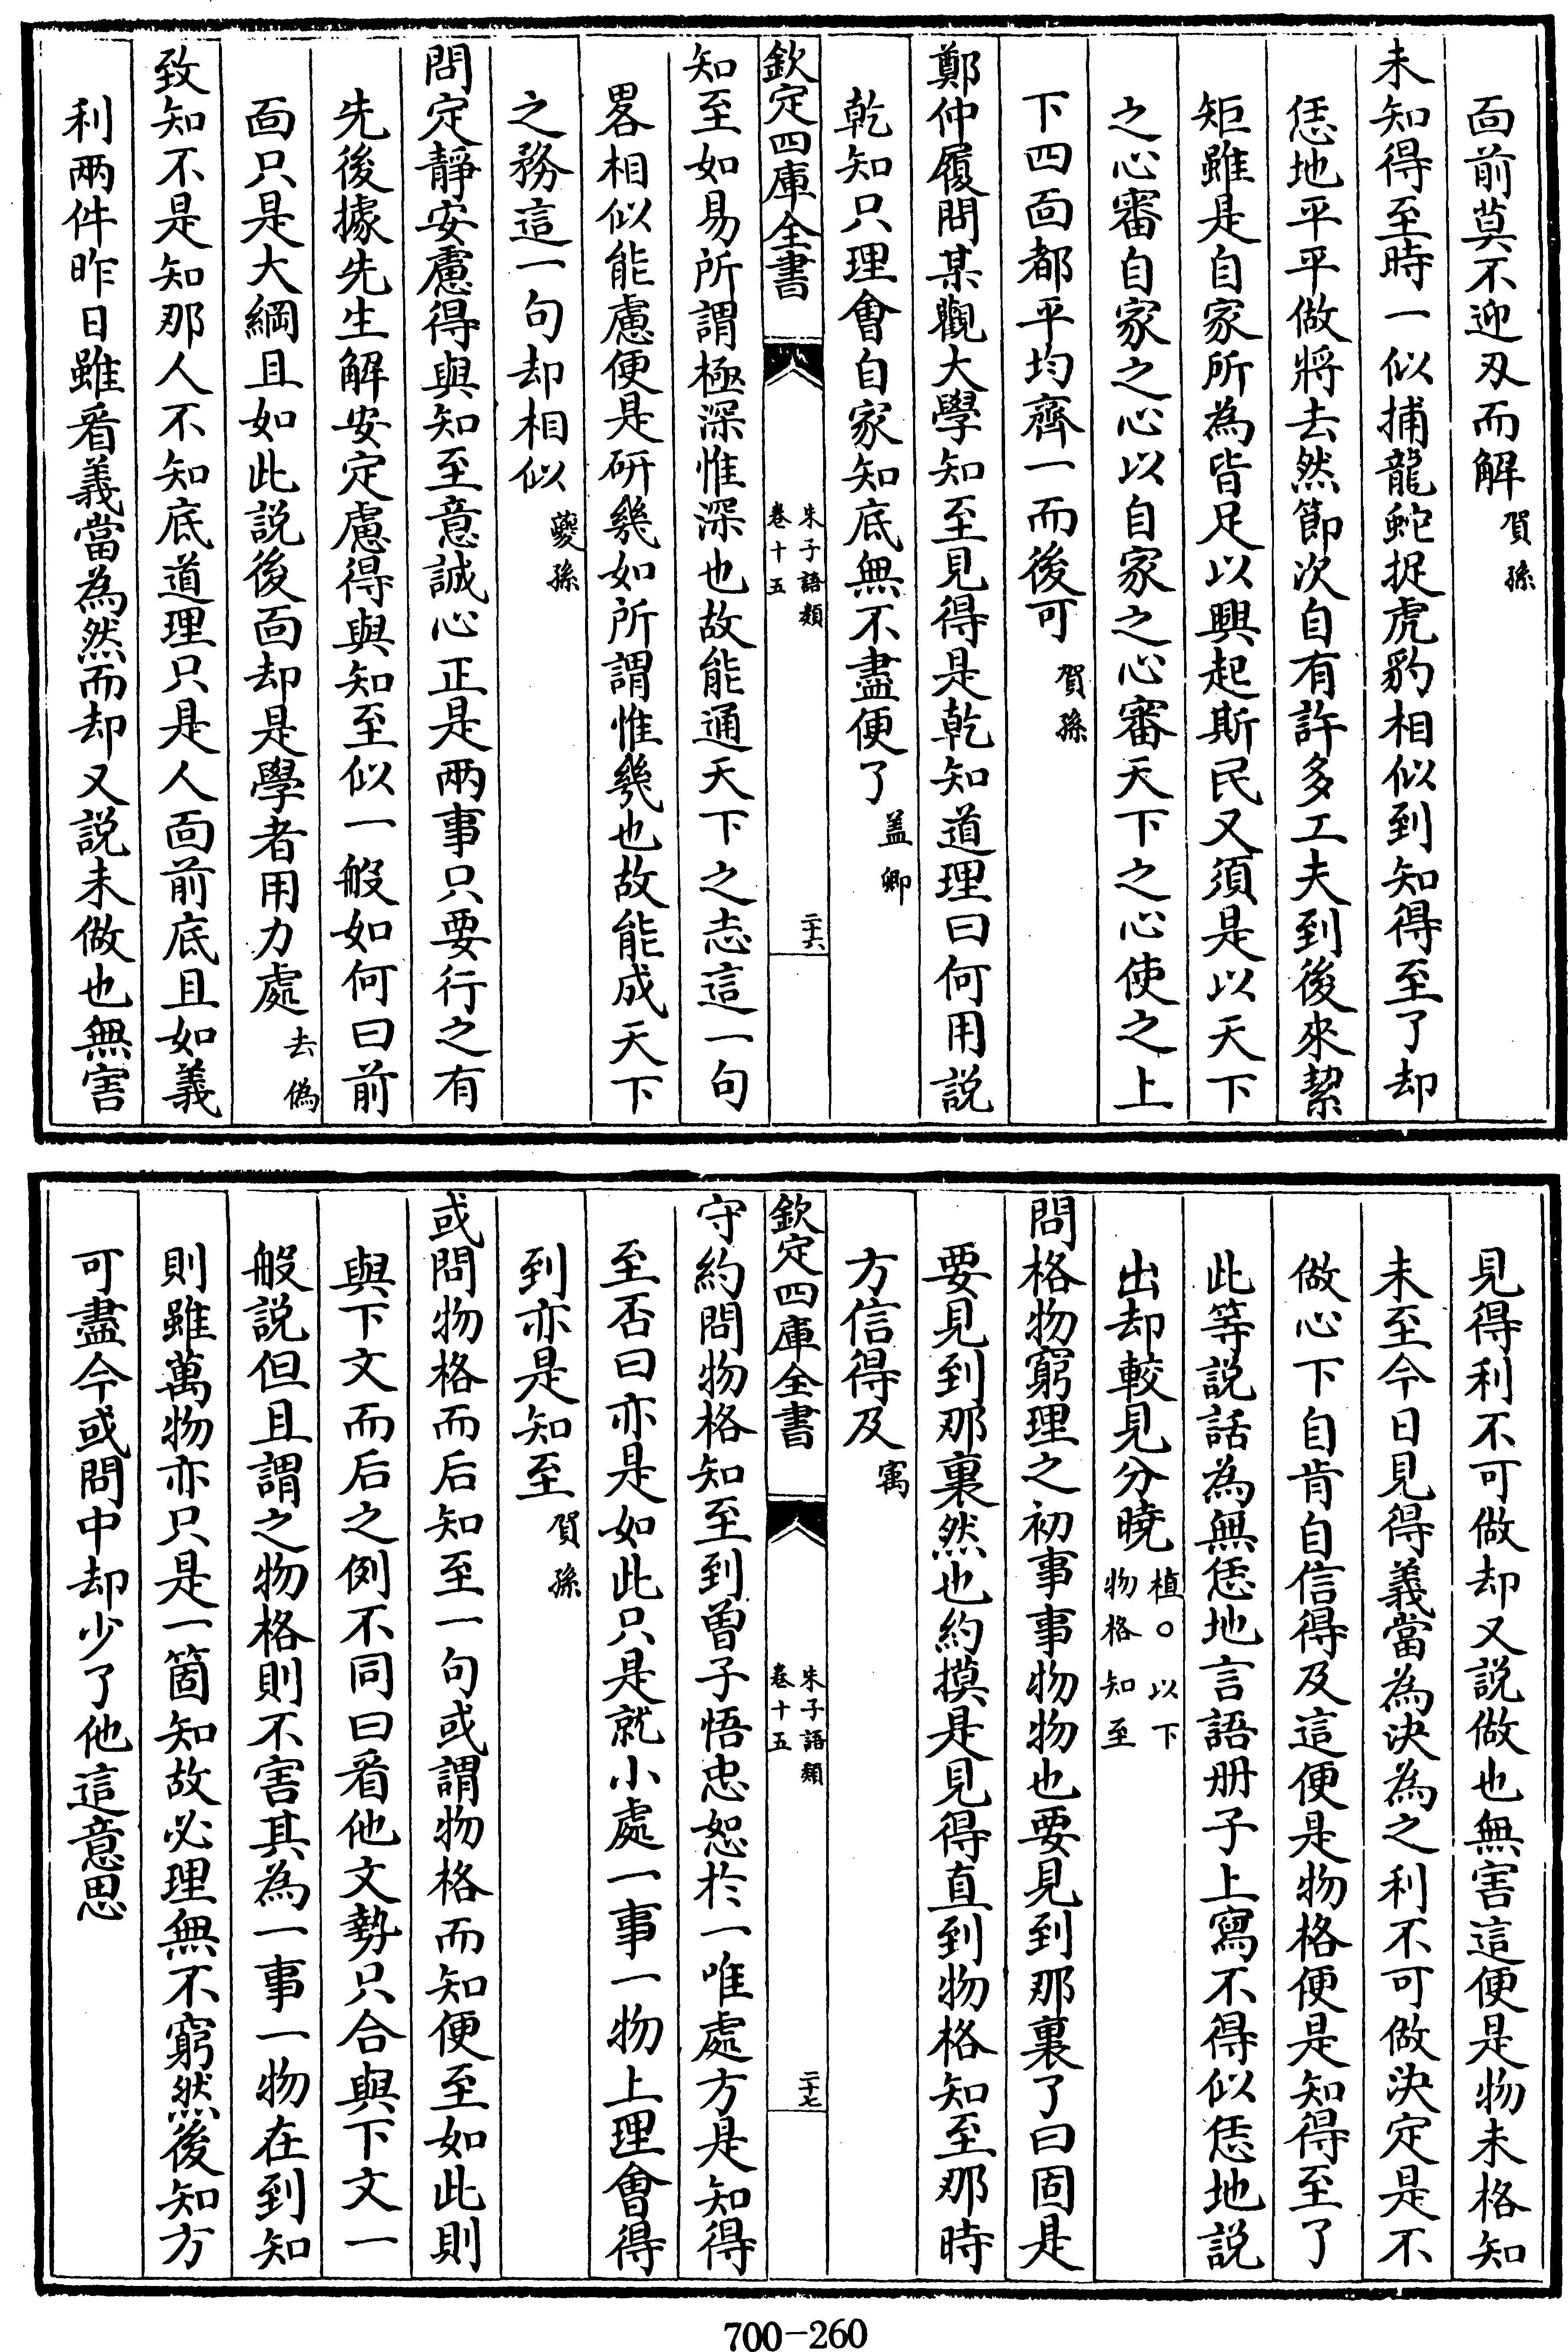 面前莫不迎刃而解賀孫
未知得至時一似捕龍蛇捉虎豹相似到知得至了却
恁地平平做將去然節次自有許多工夫到後來絜
矩雖是自家所為皆足以興起斯民又須是以天下
之心審自家之心以自家之心審天下之心使之上
下四面都平均齊一而後可賀孫
鄭仲履問某觀大學知至見得是乾知道理曰何用説
乾知只理會自家知底無不盡便了盖卿
欽定四庫全書
朱子語類
卷十五
二十六
知至如易所謂極深惟深也故能通天下之志這一句
畧相似能慮便是研幾如所謂惟幾也故能成天下
之務這一句却相似夔孫
問定靜安慮得與知至意誠心正是兩事只要行之有
先後據先生解安定慮得與知至似一般如何曰前
面只是大綱且如此説後面却是學者用力處去偽
致知不是知那人不知底道理只是人面前底且如義
利兩件昨日雖看義當為然而却又説未做也無害
見得利不可做却又説做也無害這便是物未格知
未至今日見得義當為決為之利不可做決定是不
做心下自肯自信得及這便是物格便是知得至了
此等説話為無恁地言語册子上寫不得似恁地説
出却較見分曉植○以下
物格知至
問格物窮理之初事事物物也要見到那裏了曰固是
要見到那裏然也約摸是見得直到物格知至那時
方信得及㝢
欽定四庫全書
朱子語類
卷十五
二十七
守約問物格知至到曽子悟忠恕於一唯處方是知得
至否曰亦是如此只是就小處一事一物上理會得
到亦是知至賀孫
或問物格而后知至一句或謂物格而知便至如此則
與下文而后之例不同曰看他文勢只合與下文一
般説但且謂之物格則不害其為一事一物在到知
則雖萬物亦只是一箇知故必理無不窮然後知方
可盡今或問中却少了他這意思
700-260